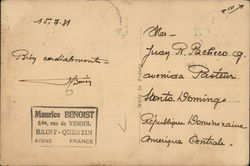 15.7.31
Bien cordialement.
Maurice BENOIST
rue de VESOUL
SAINT-QUENTIN
AISNE FRANCE
Juan R. Pacheco
avenida Pasteur
Santo Domingo
République Dominicaine
Amérique Centrale.